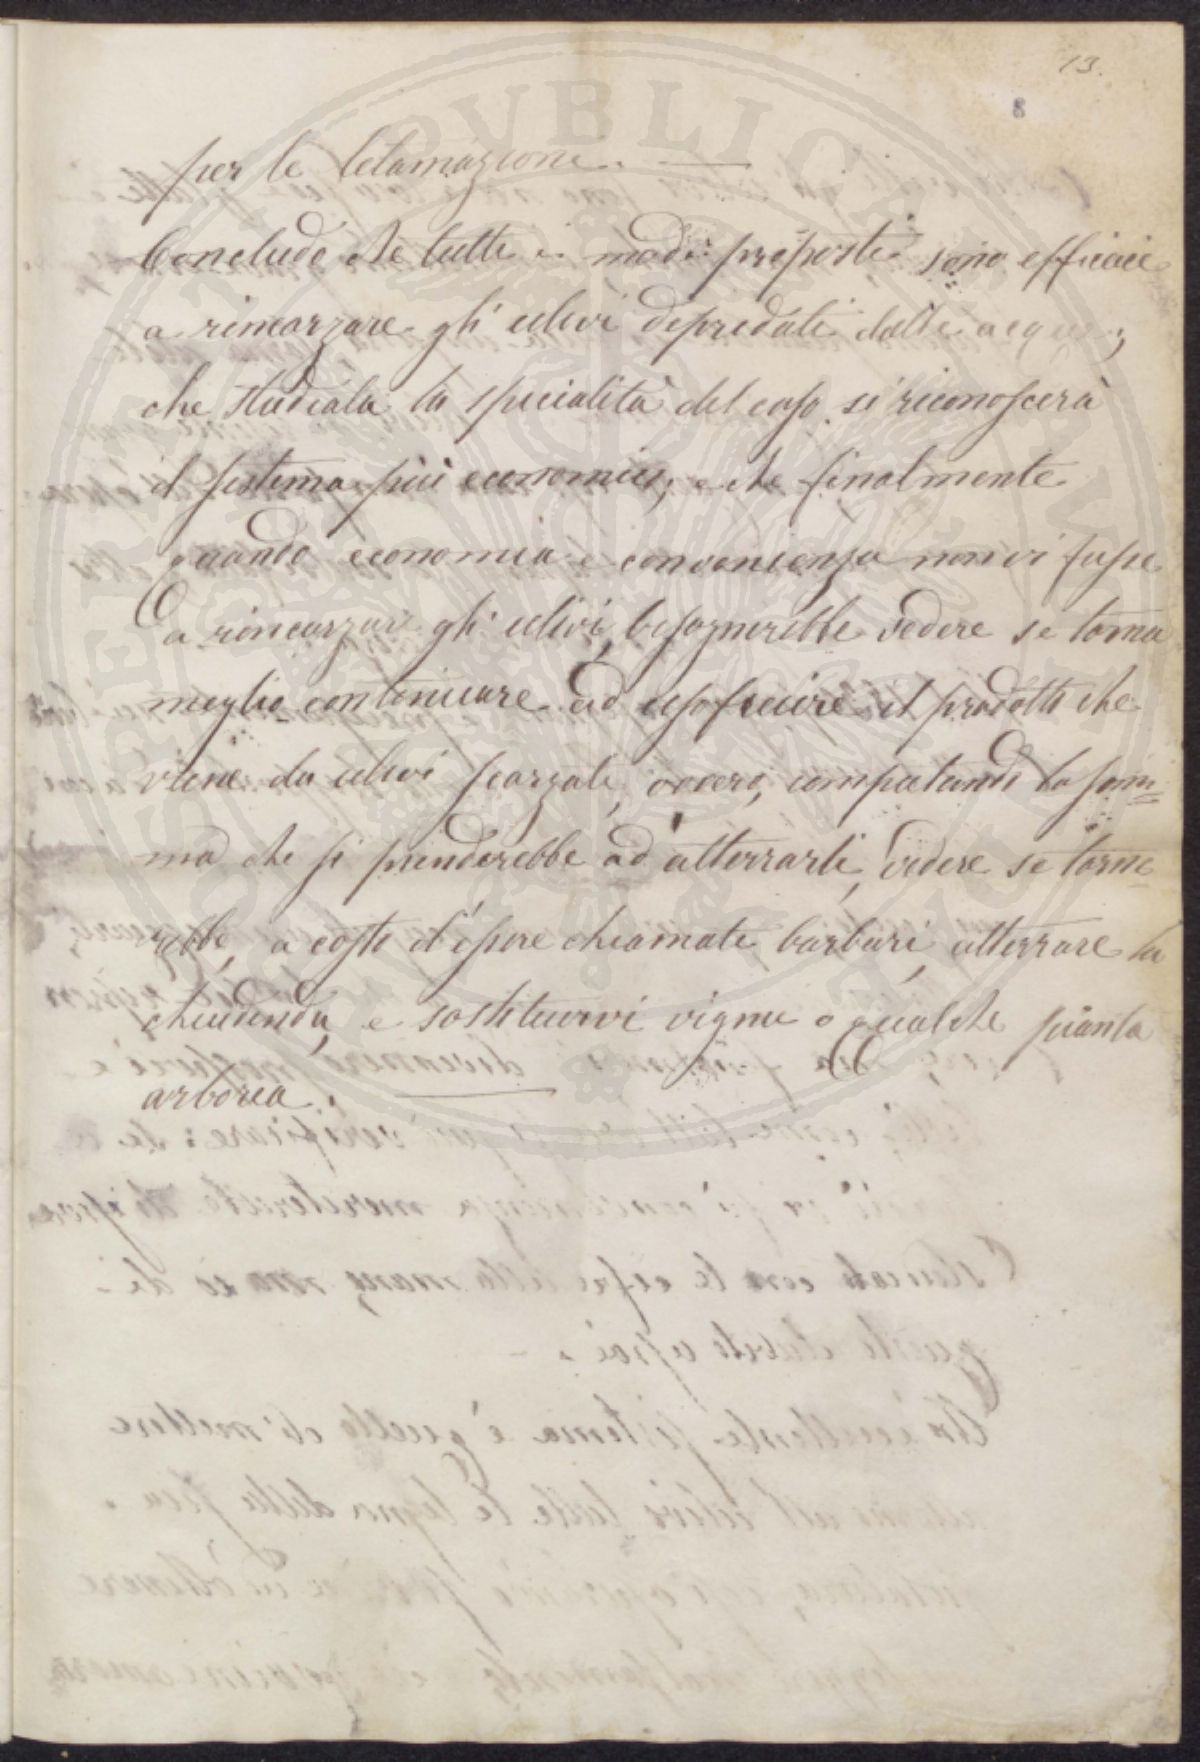 13.
8
per le letamazione.
Concludo che tutti i modi proposti sono efficaci
a rincarzare gli ulivi depredati dalle acque;
che studiata la specialità del caso si riconoscerà
il sistema più economico, e che finalmente
quando economia e convenienza non vi fusse
a rincarzare gli ulivi, bisognerebbe vedere se torna
meglio continuare ad usofruire il prodotto che
viene da ulivi scarzati, ovvero, computando la som=
ma che si prenderebbe ad atterrarli, vedere se torne
rebbe, a costo d'essere chiamati barbari, atterrare la
chiudenda, e sostituirvi vigne o qualche pianta
arborea.